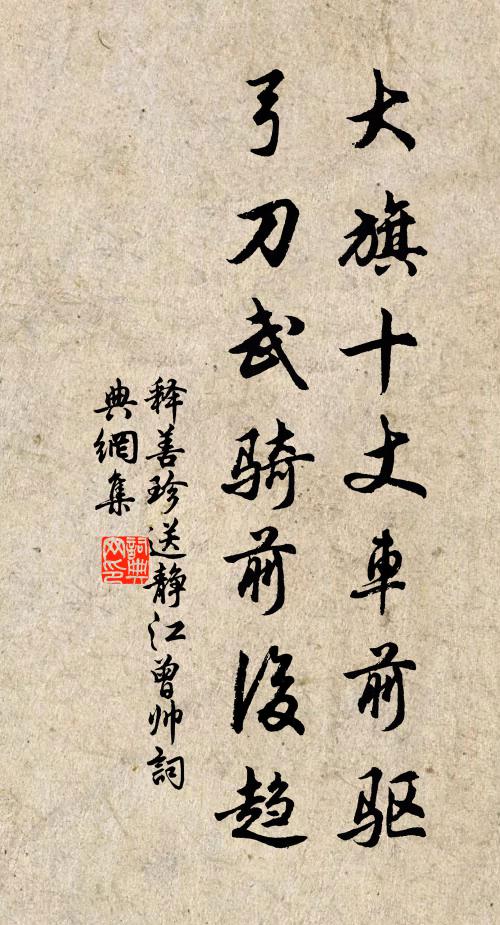 大旗十丈車前驱
弓刀武骑前後趋
释善珍送静江曾帅詞
典網集
詞典网印